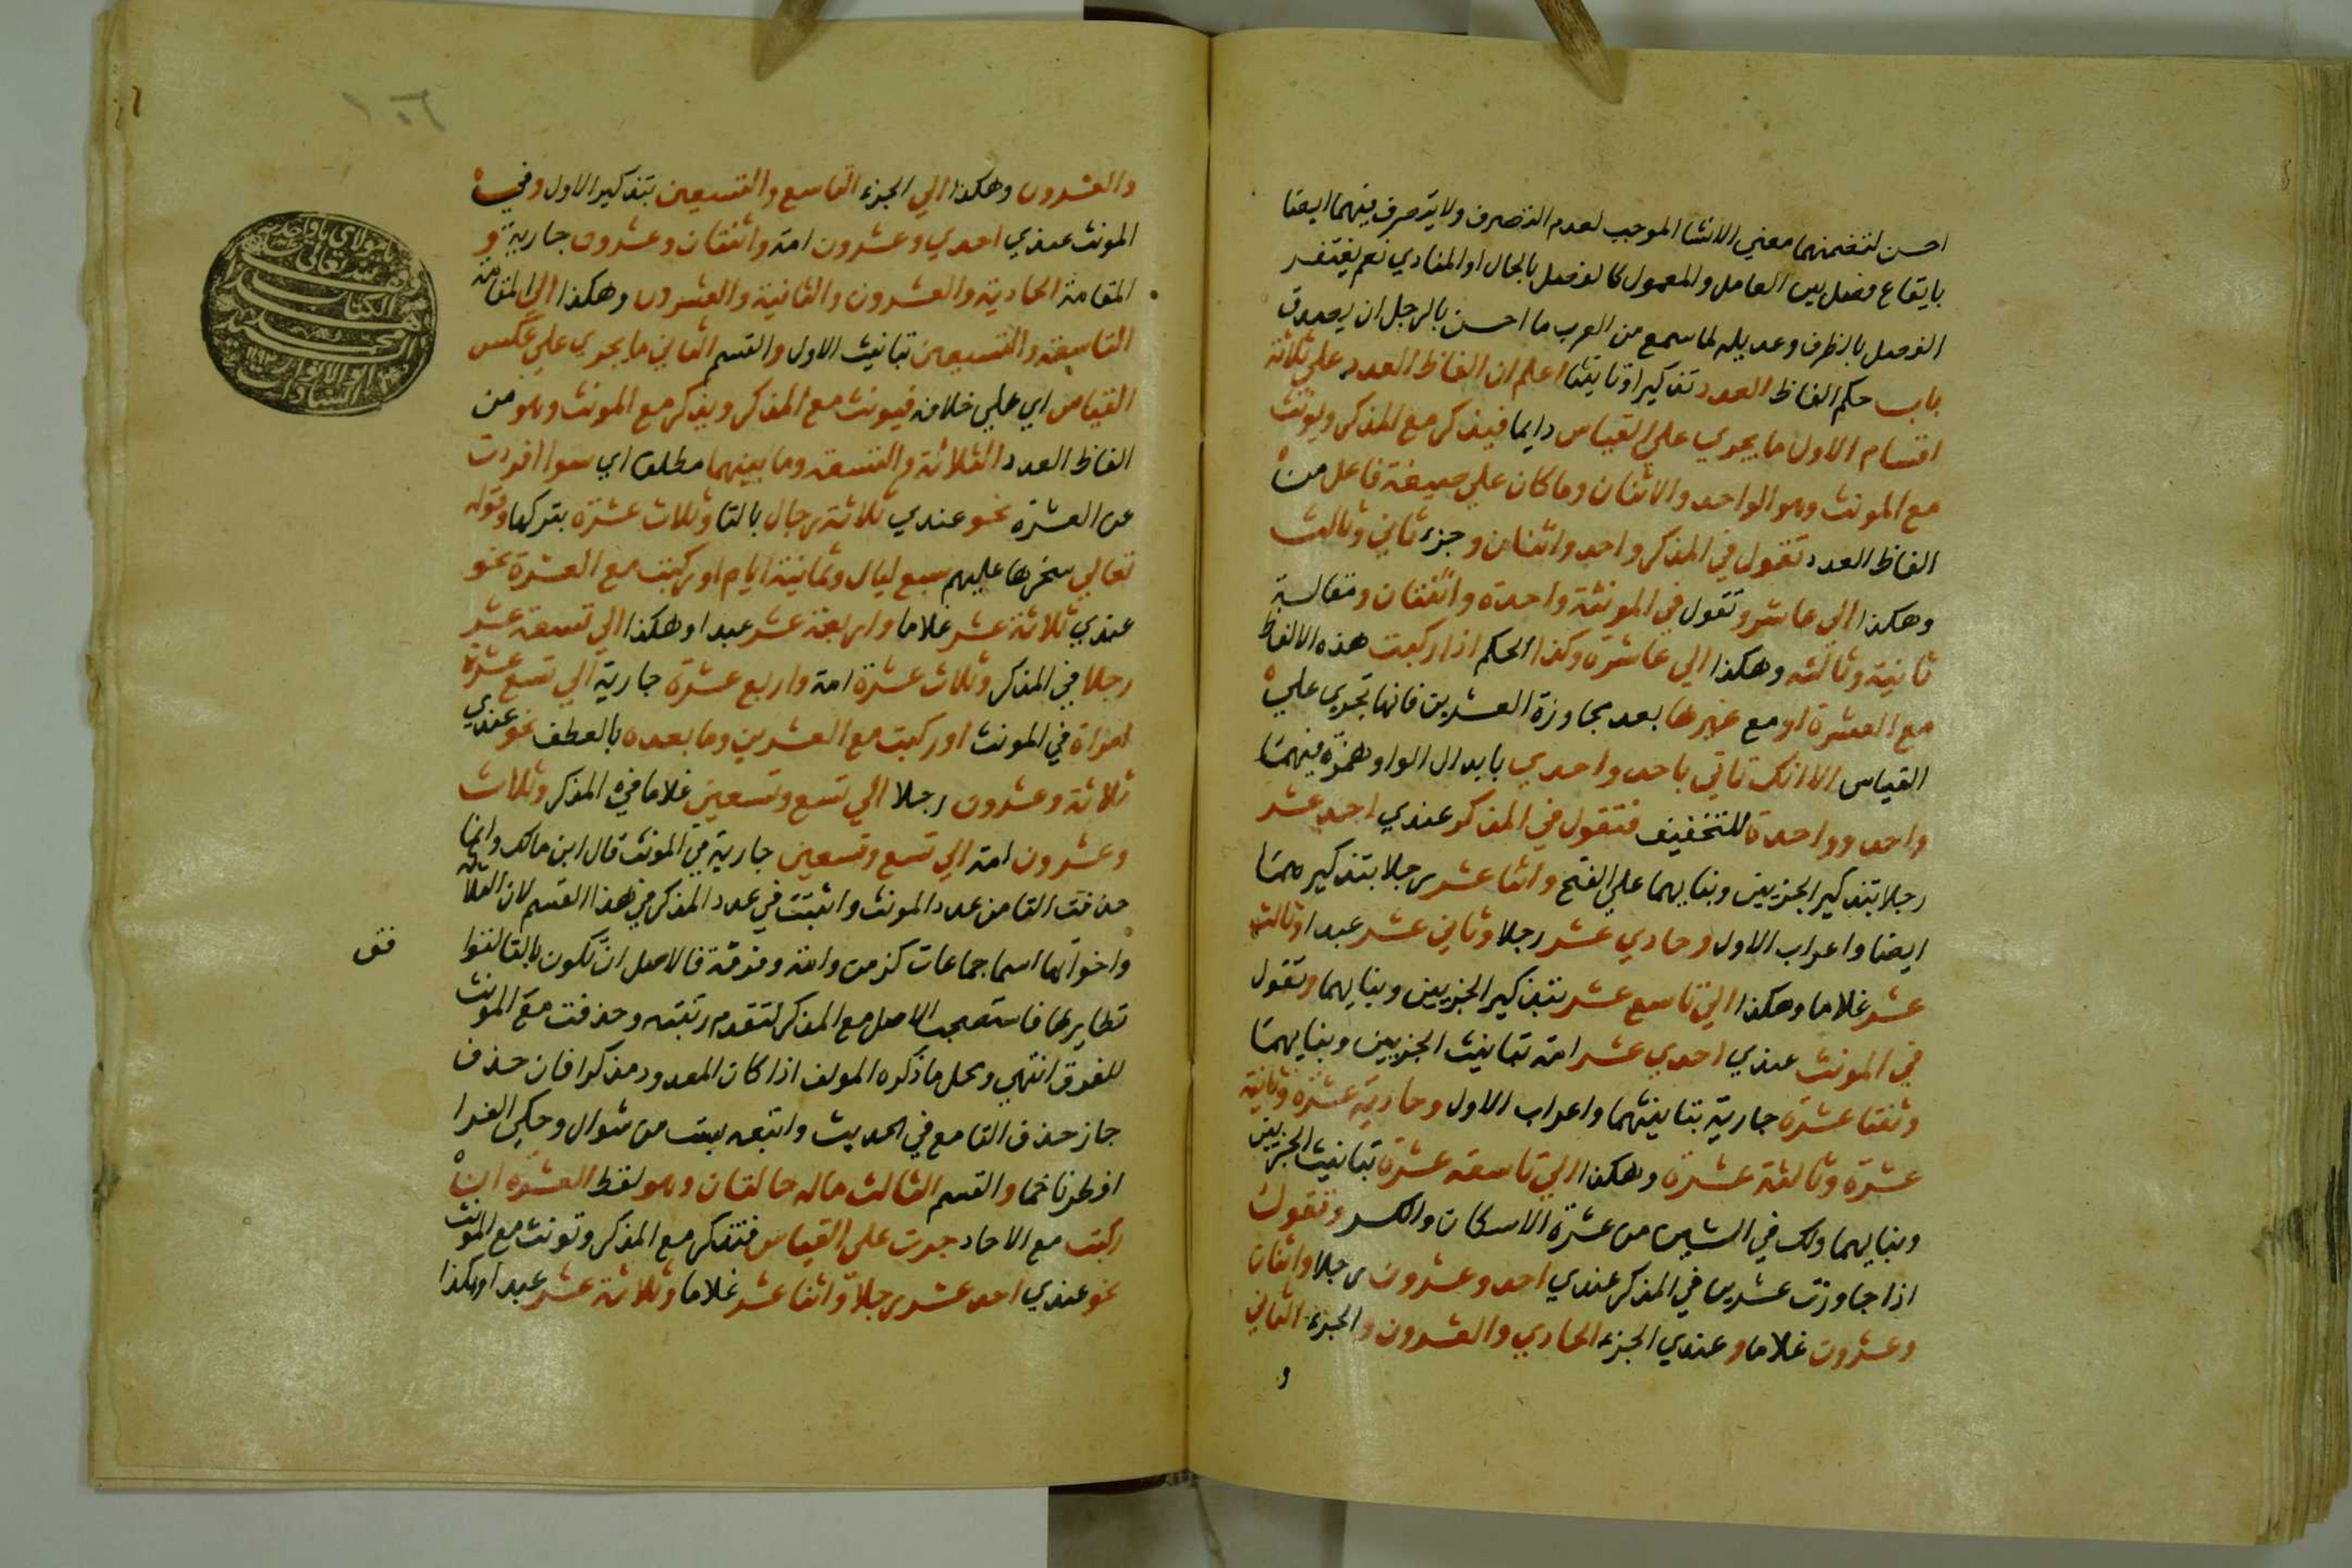 احسن لتضمنهما معني الانشا الموجب لعدم التصرف ولا يتصرف فيهما ايضا
بايقاع فصل بين العامل والمعمول كالفصل بالحال او المنادي نعم يغتفر
الفصل بالظرف وعديله لما سمع من العرب ما احسن بالرجل ان يصدق
باب حكم الفاظ العدد تذكيرا وتانيثا اعلم ان الفاظ العدد علي ثلاثة
اقسام الاول ما يجري علي القياس دايما فيذكر مع المذكر ويؤنث
مع المونث وهو الواحد والاثنان وما كان علي صيغة فاعل من
الفاظ العدد تقول في المذكر واحد واثنان وجزء ثاني وثالث
وهكذا الي عاشر وتقول في المونثة واحدة واثنتان ومقالة
ثانية وثالثه وهكذا الي عاشرة وكذا الحكم اذا ركبت هذه الالفاظ
مع العشرة او مع غيرها بعد مجاوزة العشرين فانها تجري علي
القياس الا انك تاتي باحد واحدي بابدال الواو همزة فيهما
واحد وواحدة للتخفيف فتقول في المذكر عندي احد عشر
رجلا بتذكير الجزيين وبنايهما علي الفتح واثنا عشر رجلا بتذكيرهما
ايضا واعراب الاول وحادي عشر رجلا وثاني عشر عبدا وثالث
عشر غلاما وهكذا الي تاسع عشر بتذكير الجزيين وبنايهما وتقول
في المونث عندي احدي عشر امة بتانيث الجزيين وبنايهما
وثنتا عشرة جارية بتانيثهما واعراب الاول وحادية عشرة وثانية
عشرة وثالثة عشرة وهكذا الي تاسعه عشرة بتانيث الجزيين
وبنايهما ولك في الشين من عشرة الاسكان والكسر وتقول
اذا جاوزت عشرين في المذكر عندي احد وعشرون رجلا واثنان
وعشرون غلاما وعندي الجزء الحادي والعشرون والجزء الثاني
و
١٠٦
والعشرون وهكذا الي الجزء التاسع والتسعين بتذكير الاول وفي
المونث عندي احدي وعشرون امة واثنتان وعشرون جارية و
المقامة الحادية والعشرون والثانية والعشرون وهكذا الي المقامة
التاسعة والتسعين بتانيث الاول والقسم الثاني ما يجري علي عكس
القياس اي علي خلافه فيونث مع المذكر ويذكر مع المونث وهو من
الفاظ العدد الثلاثة والتسعة وما بينهما مطلقا اي سوا افردت
عن العشرة نحو عندي ثلاثة رجال بالتا وثلاث عشرة بتركها وقوله
تعالي سخرها عليهم سبع ليال وثمانية ايام او ركبت مع العشرة نحو
عندي ثلاثة عشر غلاما واربعة عشر عبدا وهكذا الي تسعة عشر
رجلا في المذكر وثلاث عشرة امة واربع عشرة جارية الي تسع عشرة
امراة في المونث او ركبت مع العشرين وما بعده بالعطف نحو عندي
ثلاثة وعشرون رجلا الي تسع وتسعين غلاما في المذكر وثلاث
وعشرون امة الي تسع وتسعين جارية في المونث قال ابن مالك وانما
حذفت التا من عدد المونث واثبتت في عدد المذكر في هذا القسم لان الثلاثة
واخواتها اسما جماعات كزمرة وامة وفرقة فالاصل ان تكون بالتا لتوا
فق
نظايرها فاستصحب الاصل مع المذكر لتقدم رتبته وحذفت مع المونث
للفرق انتهي ومحل ما ذكره المولف اذا كان المعدود مذكرا فان حذف
جاز حذف التا مع في الحديث واتبعه بست من شوال وحكي الفرا
افطرنا خمسا والقسم الثالث ماله حالتان وهو لفظ العشرة ان
ركبت مع الاحاد جرت علي القياس فتذكر مع المذكر وتونث مع المونث
نحو عندي احد عشر رجلا واثنا عشر غلاما وثلاثة عشر عبدا وهكذا